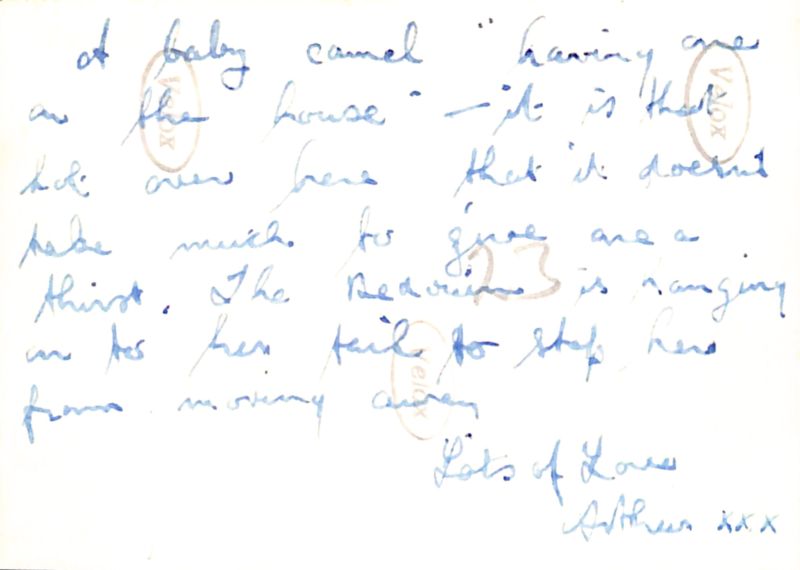 A baby camel "having one
on the house" – it is that
hot over here that it doesn't
take much to give one a
thirst. The Bedouin is hanging
on to her tail to stop her
from moving away
Lots of Love
Arthur xxx
Velox
Velox
Velox
23